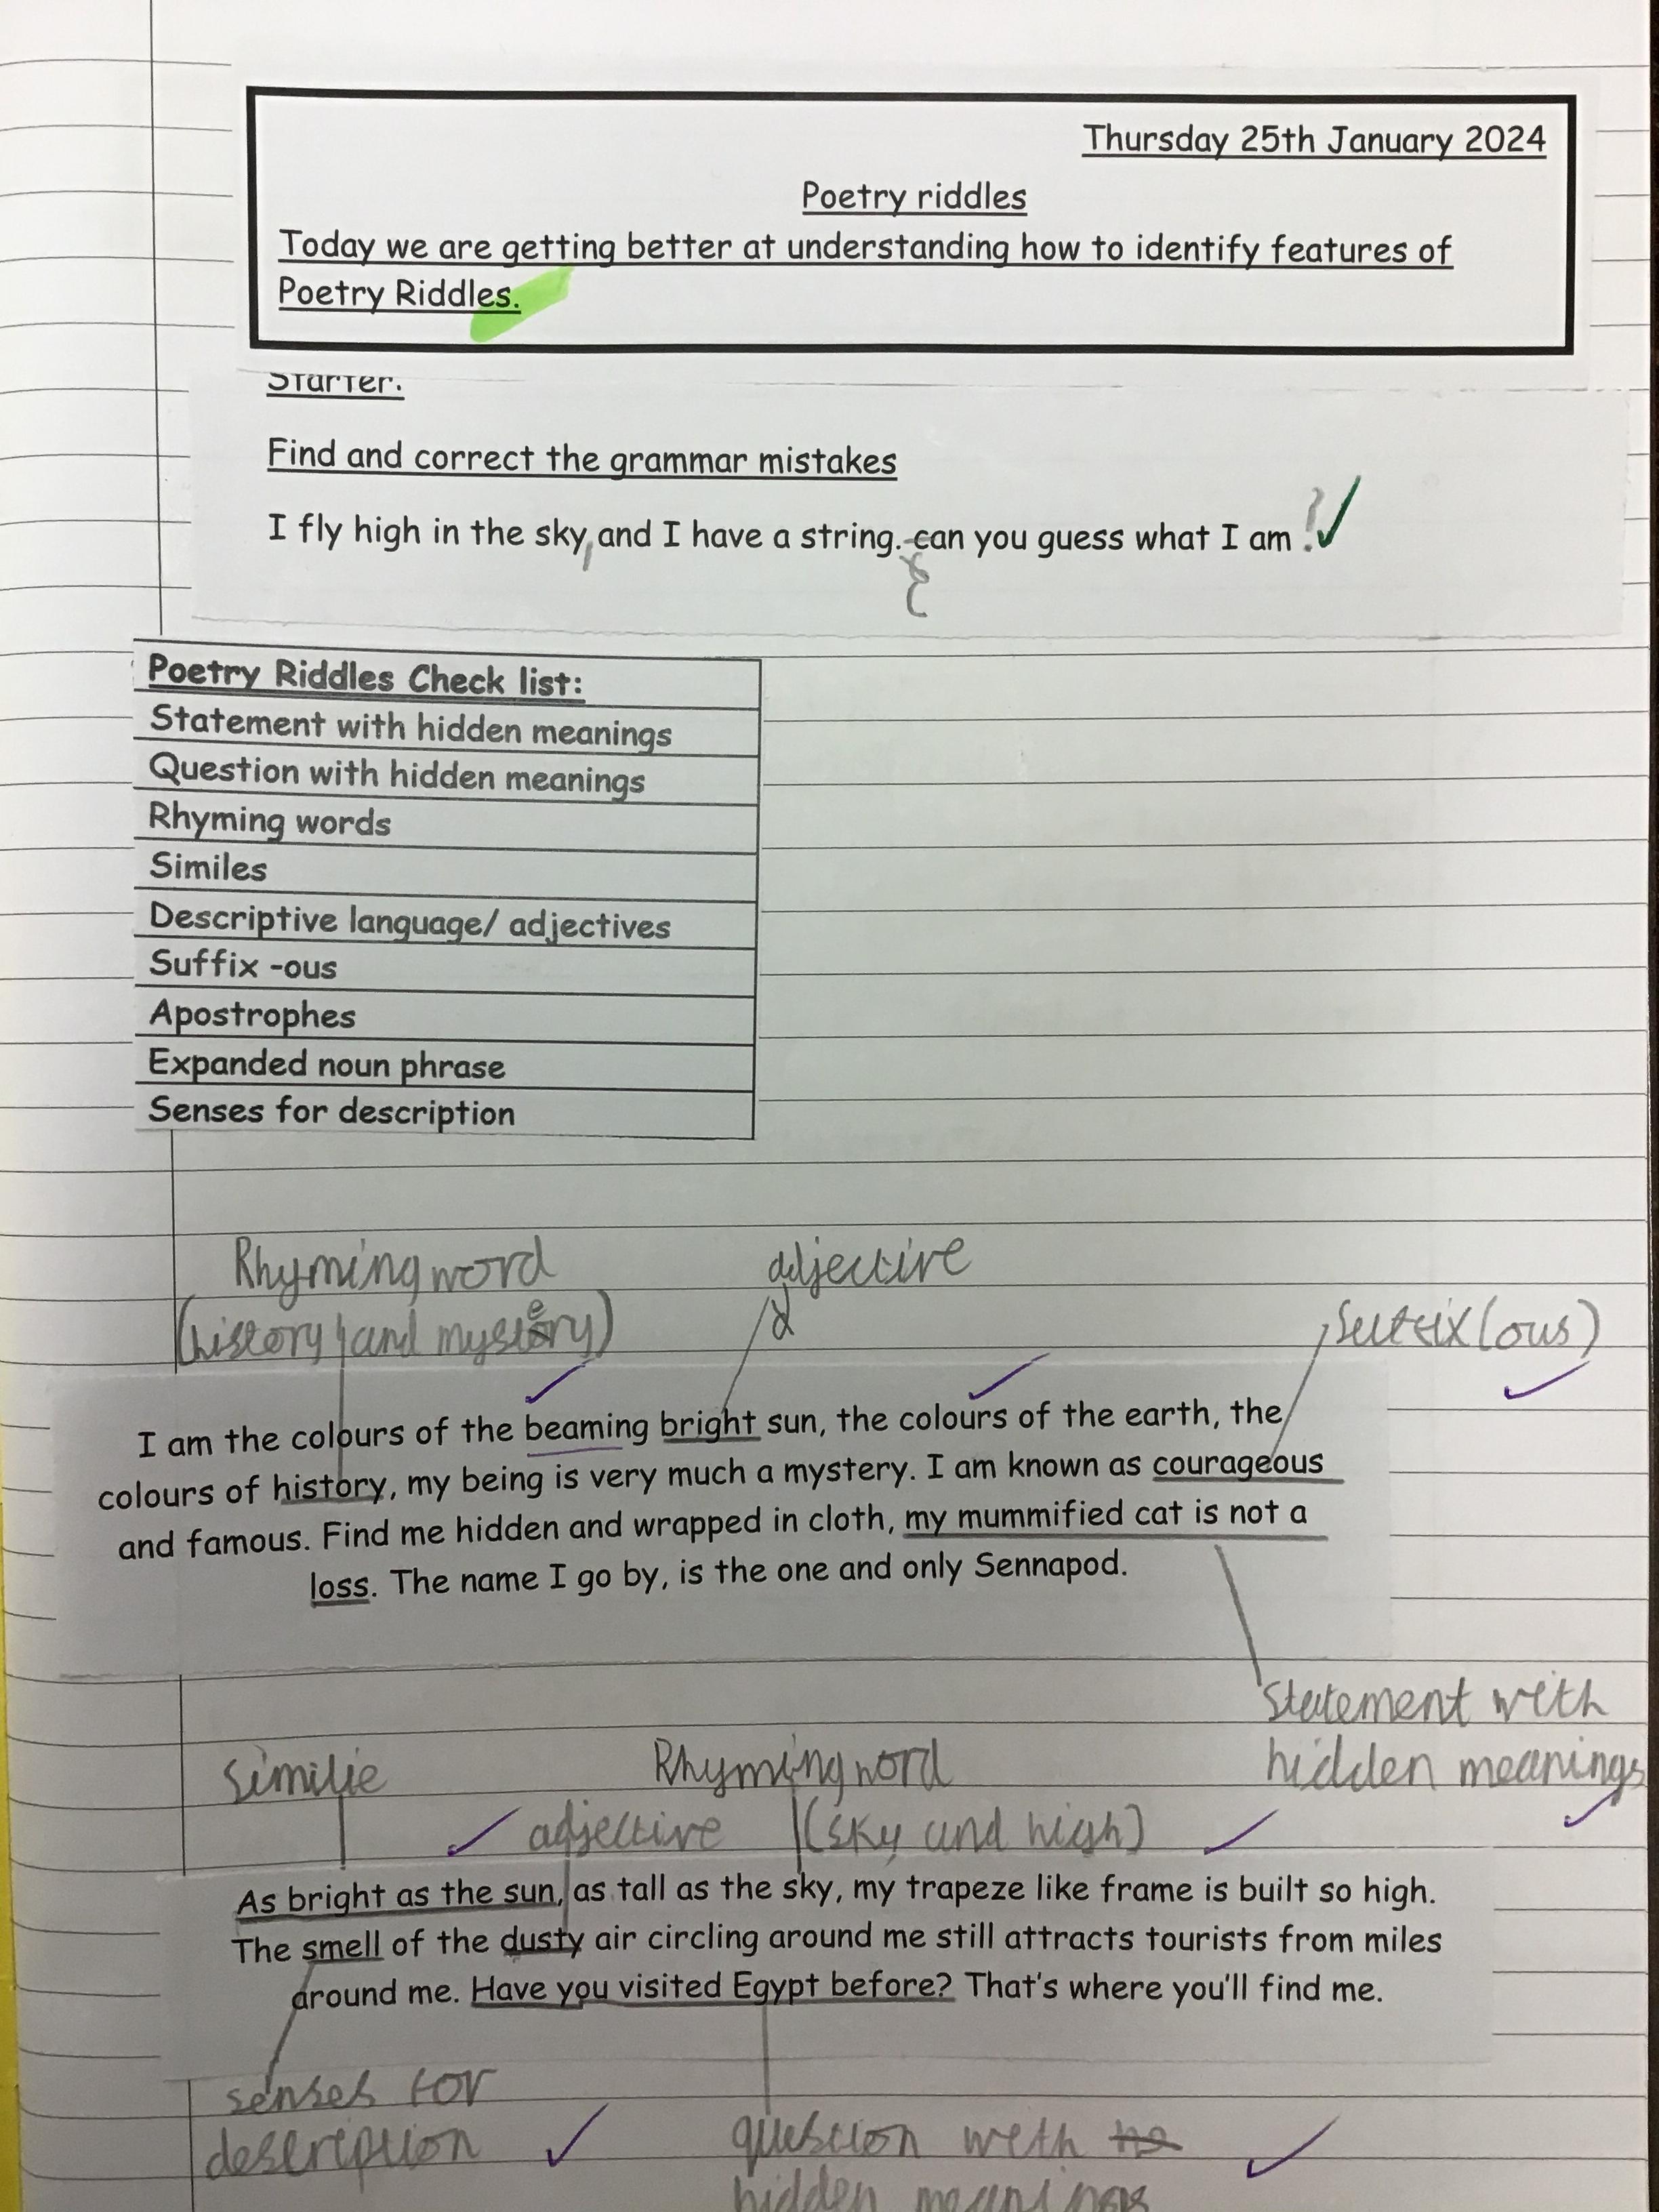 Thursday 25th January 2024
Poetry riddles
Today we are getting better at understanding how to identify features of
Poetry Riddles.
Starter.
Find and correct the grammar mistakes
I fly high in the sky, and I have a string. can you guess what I am ?
C
Poetry Riddles Check list:
Statement with hidden meanings
Question with hidden meanings
Rhyming words
Similes
Descriptive language/ adjectives
Suffix -ous
Apostrophes
Expanded noun phrase
Senses for description
Rhyming word
adjective
(history and mystery)
Suffix (ous)
I am the colours of the beaming bright sun, the colours of the earth, the
colours of history, my being is very much a mystery. I am known as courageous
and famous. Find me hidden and wrapped in cloth, my mummified cat is not a
loss. The name I go by, is the one and only Sennapod.
Statement with
hidden meanings
Similie
Rhyming word
adjective
(sky and high)
As bright as the sun, as tall as the sky, my trapeze like frame is built so high.
The smell of the dusty air circling around me still attracts tourists from miles
around me. Have you visited Egypt before? That's where you'll find me.
senses for
description
question with
hidden meanings